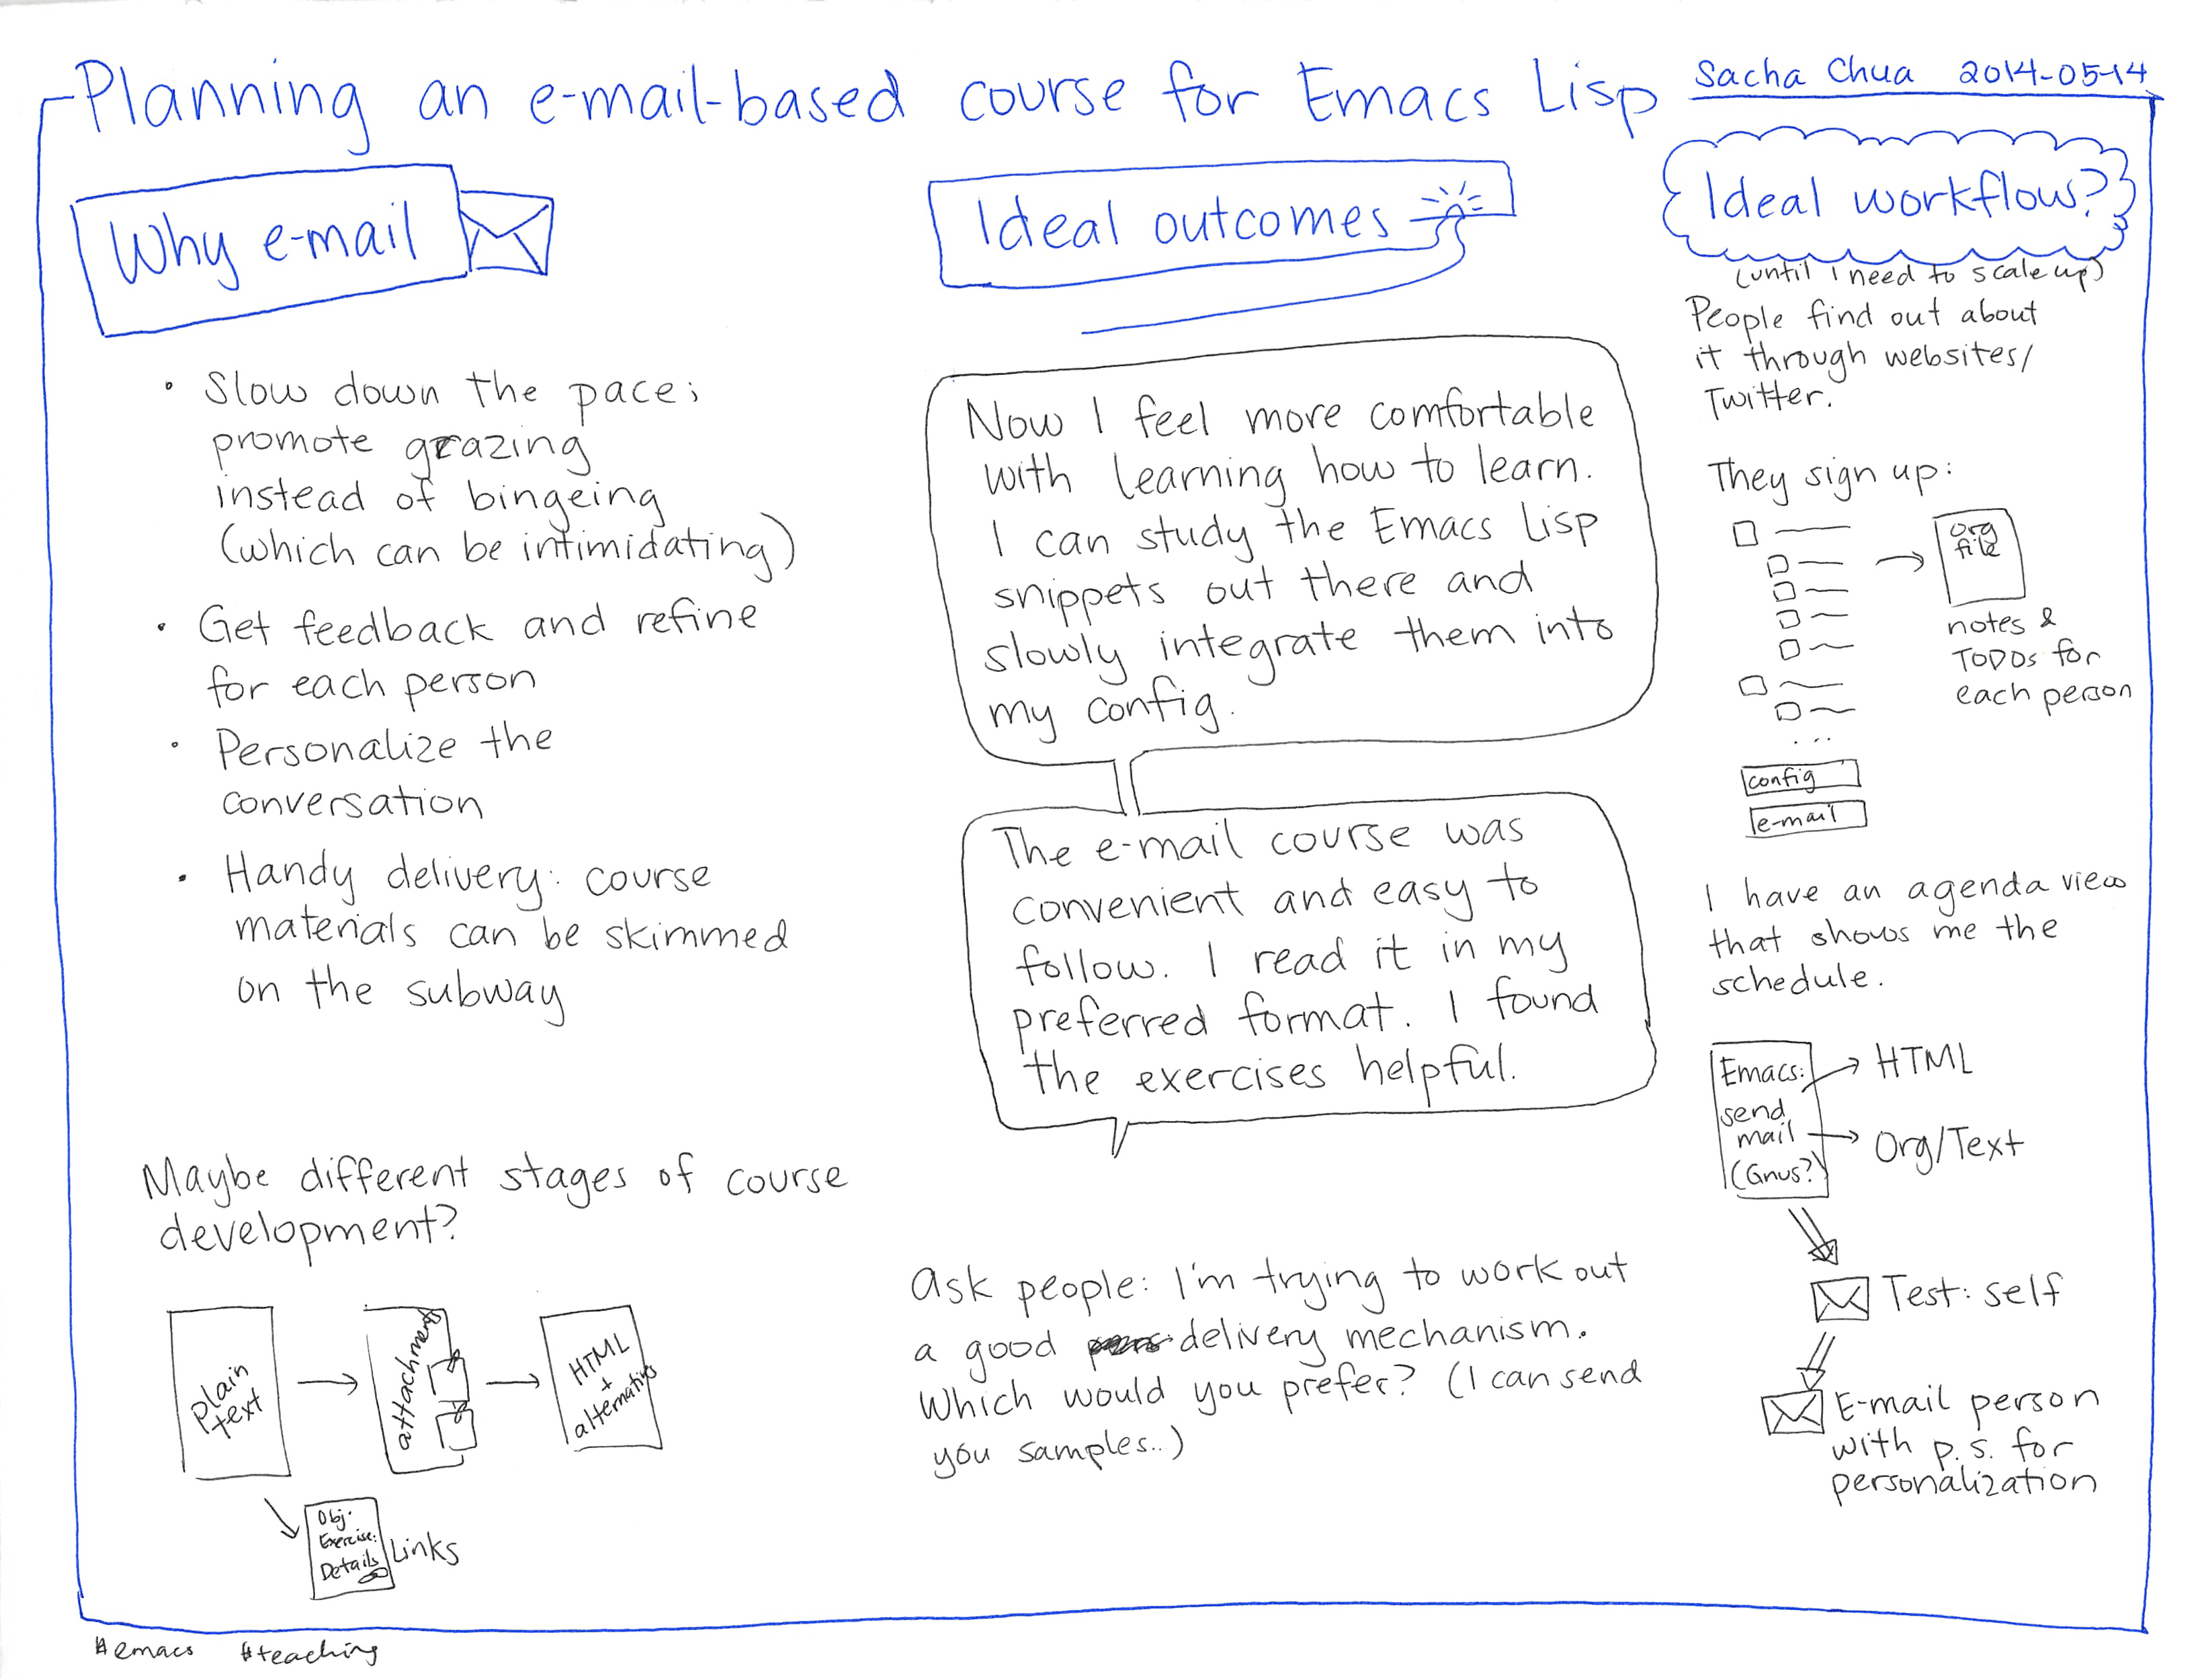 Planning an e-mail-based course for Emacs Lisp
Sacha Chua 2014-05-14
Why e-mail
• Slow down the pace;
promote grazing
instead of bingeing
(which can be intimidating)
• Get feedback and refine
for each person
• Personalize the
conversation
• Handy delivery: course
materials can be skimmed
on the subway
Maybe different stages of course
development?
Plain
text
attachment
HTML
+
alternatives
Obj.
Exercise:
Details
Links
Ideal outcomes
Now I feel more comfortable
with learning how to learn.
I can study the Emacs Lisp
snippets out there and
slowly integrate them into
my config.
The e-mail course was
convenient and easy to
follow. I read it in my
preferred format. I found
the exercises helpful.
Ask people: I'm trying to work out
a good delivery mechanism.
Which would you prefer? (I can send
you samples..)
Ideal workflow?
(until I need to scale up)
People find out about
it through websites/
Twitter.
They sign up:
org
file
notes &
TODOs for
each person
...
config
e-mail
I have an agenda view
that shows me the
schedule.
Emacs:
send
mail
(Gnus?)
HTML
Org/Text
Test: self
E-mail person
with p.s. for
personalization
#emacs #teaching